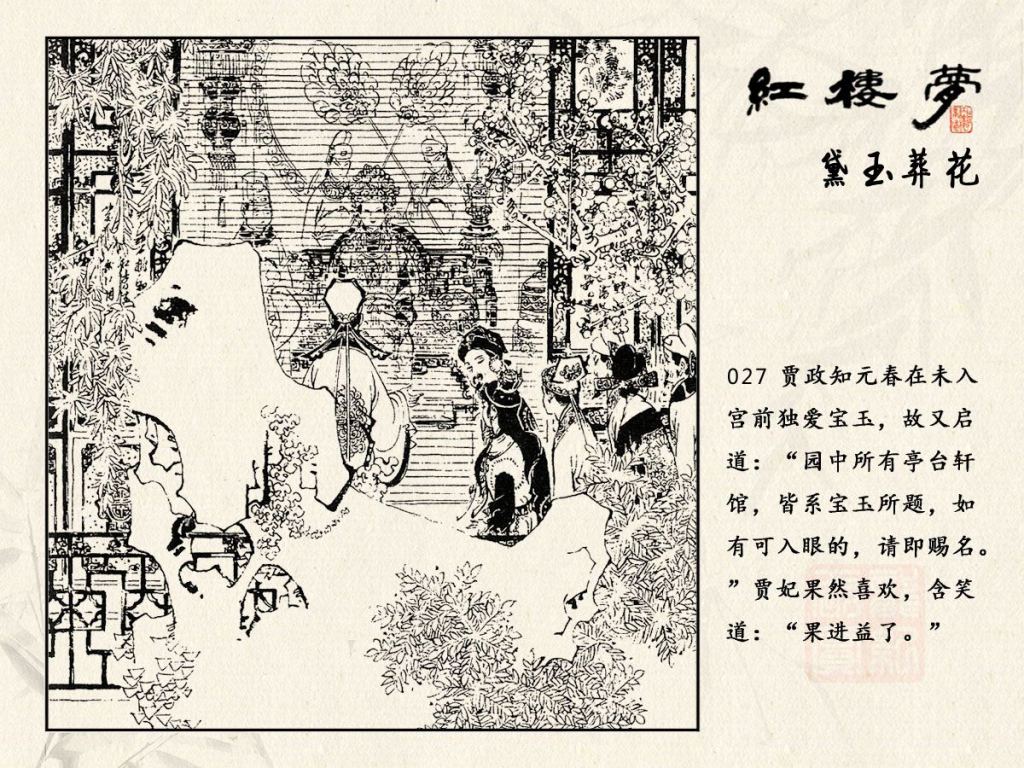 紅樓夢
黛玉葬花
027 贾政知元春在未入
宫前独爱宝玉，故又启
道：“园中所有亭台轩
馆，皆系宝玉所题，如
有可入眼的，请即赐名。
”贾妃果然喜欢，含笑
道：“果进益了。”